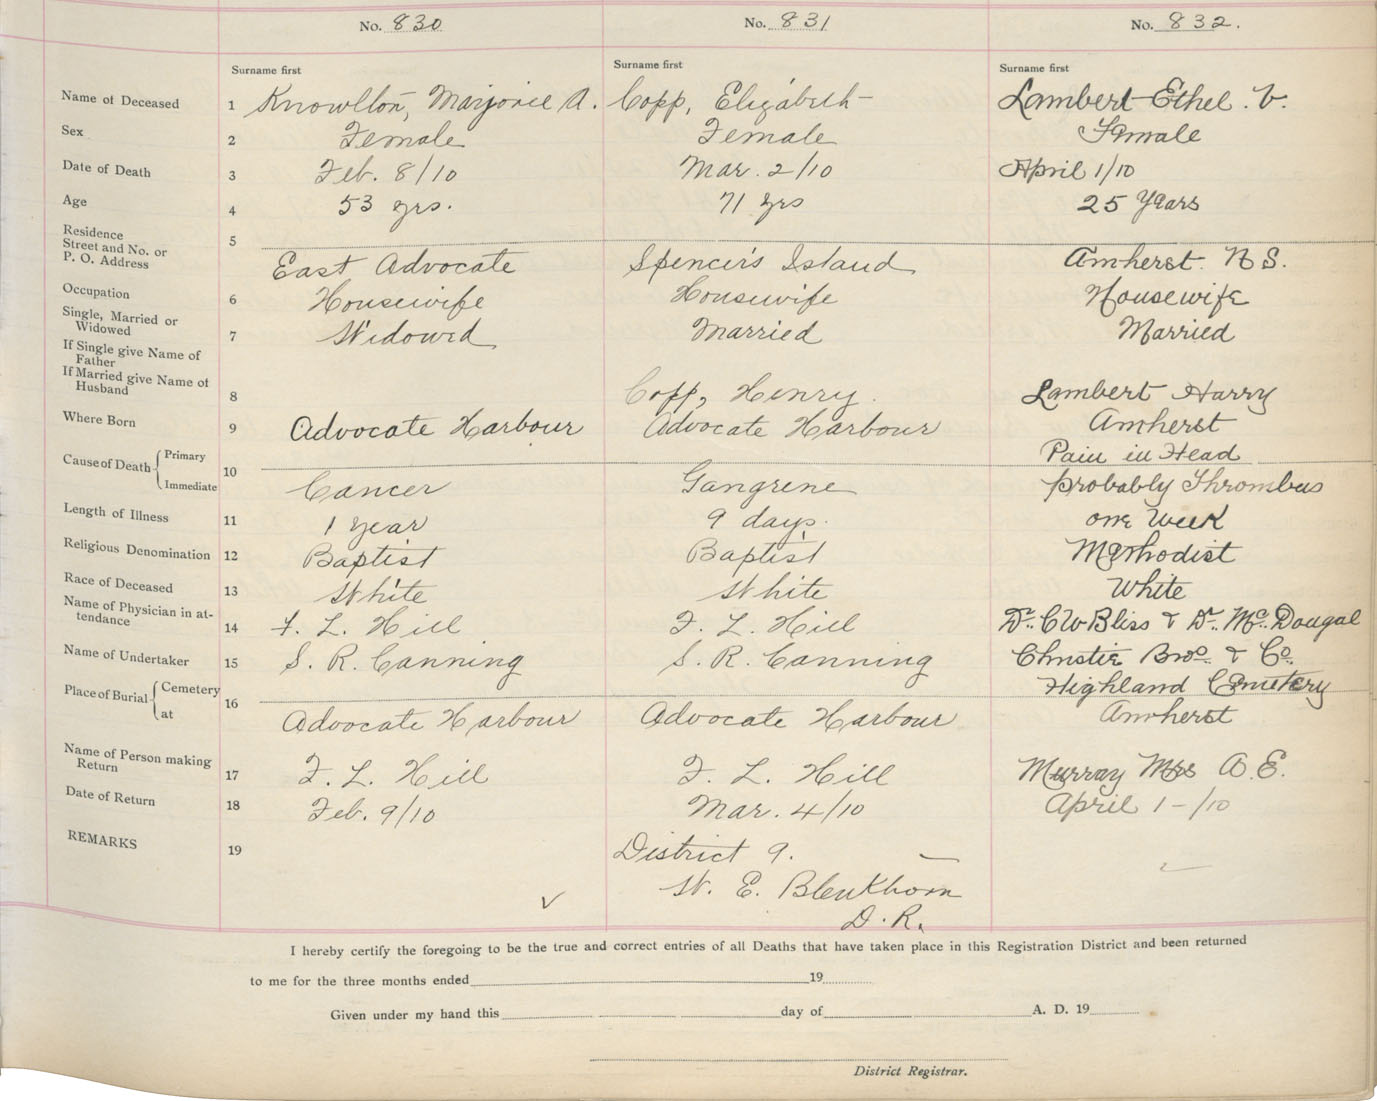 No. 830 No. 831 No. 832.
Surname first Surname first Surname first
Name of Deceased 1 Knowlton, Marjorie A. Copp, Elizabeth Lambert Ethel. V.
Sex 2 Female Female Female
Date of Death 3 Feb. 8/10 Mar. 2/10 April 1/10
Age 4 53 yrs. 71 yrs 25 Years
Residence
Street and No. or
P. O. Address 5 East Advocate Spencer's Island Amherst. N S.
Occupation 6 Housewife Housewife Housewife
Single, Married or
Widowed 7 Widowed Married Married
If Single give Name of
Father
If Married give Name of
Husband 8 Copp, Henry. Lambert Harry
Where Born 9 Advocate Harbour Advocate Harbour Amherst
Cause of Death Primary Pain in Head
Immediate 10 Cancer Gangrene probably Thrombus
Length of Illness 11 1 year 9 days. one Week
Religious Denomination 12 Baptist Baptist Methodist
Race of Deceased 13 White White White
Name of Physician in at-
tendance 14 F. L. Hill F. L. Hill Dr. C W Bliss & Dr. Mc. Dougal
Name of Undertaker 15 S. R. Canning S. R. Canning Christie Bros. & Co.
Place of Burial Cemetery Highland Cemetery
at 16 Advocate Harbour Advocate Harbour Amherst
Name of Person making
Return 17 F. L. Hill F. L. Hill Murray Mrs A. E.
Date of Return 18 Feb. 9/10 Mar. 4/10 April 1-/10
REMARKS 19 District 9.
W. E. Blenkhorn
D. R.
I hereby certify the foregoing to be the true and correct entries of all Deaths that have taken place in this Registration District and been returned
to me for the three months ended 19
Given under my hand this day of A. D. 19
District Registrar.